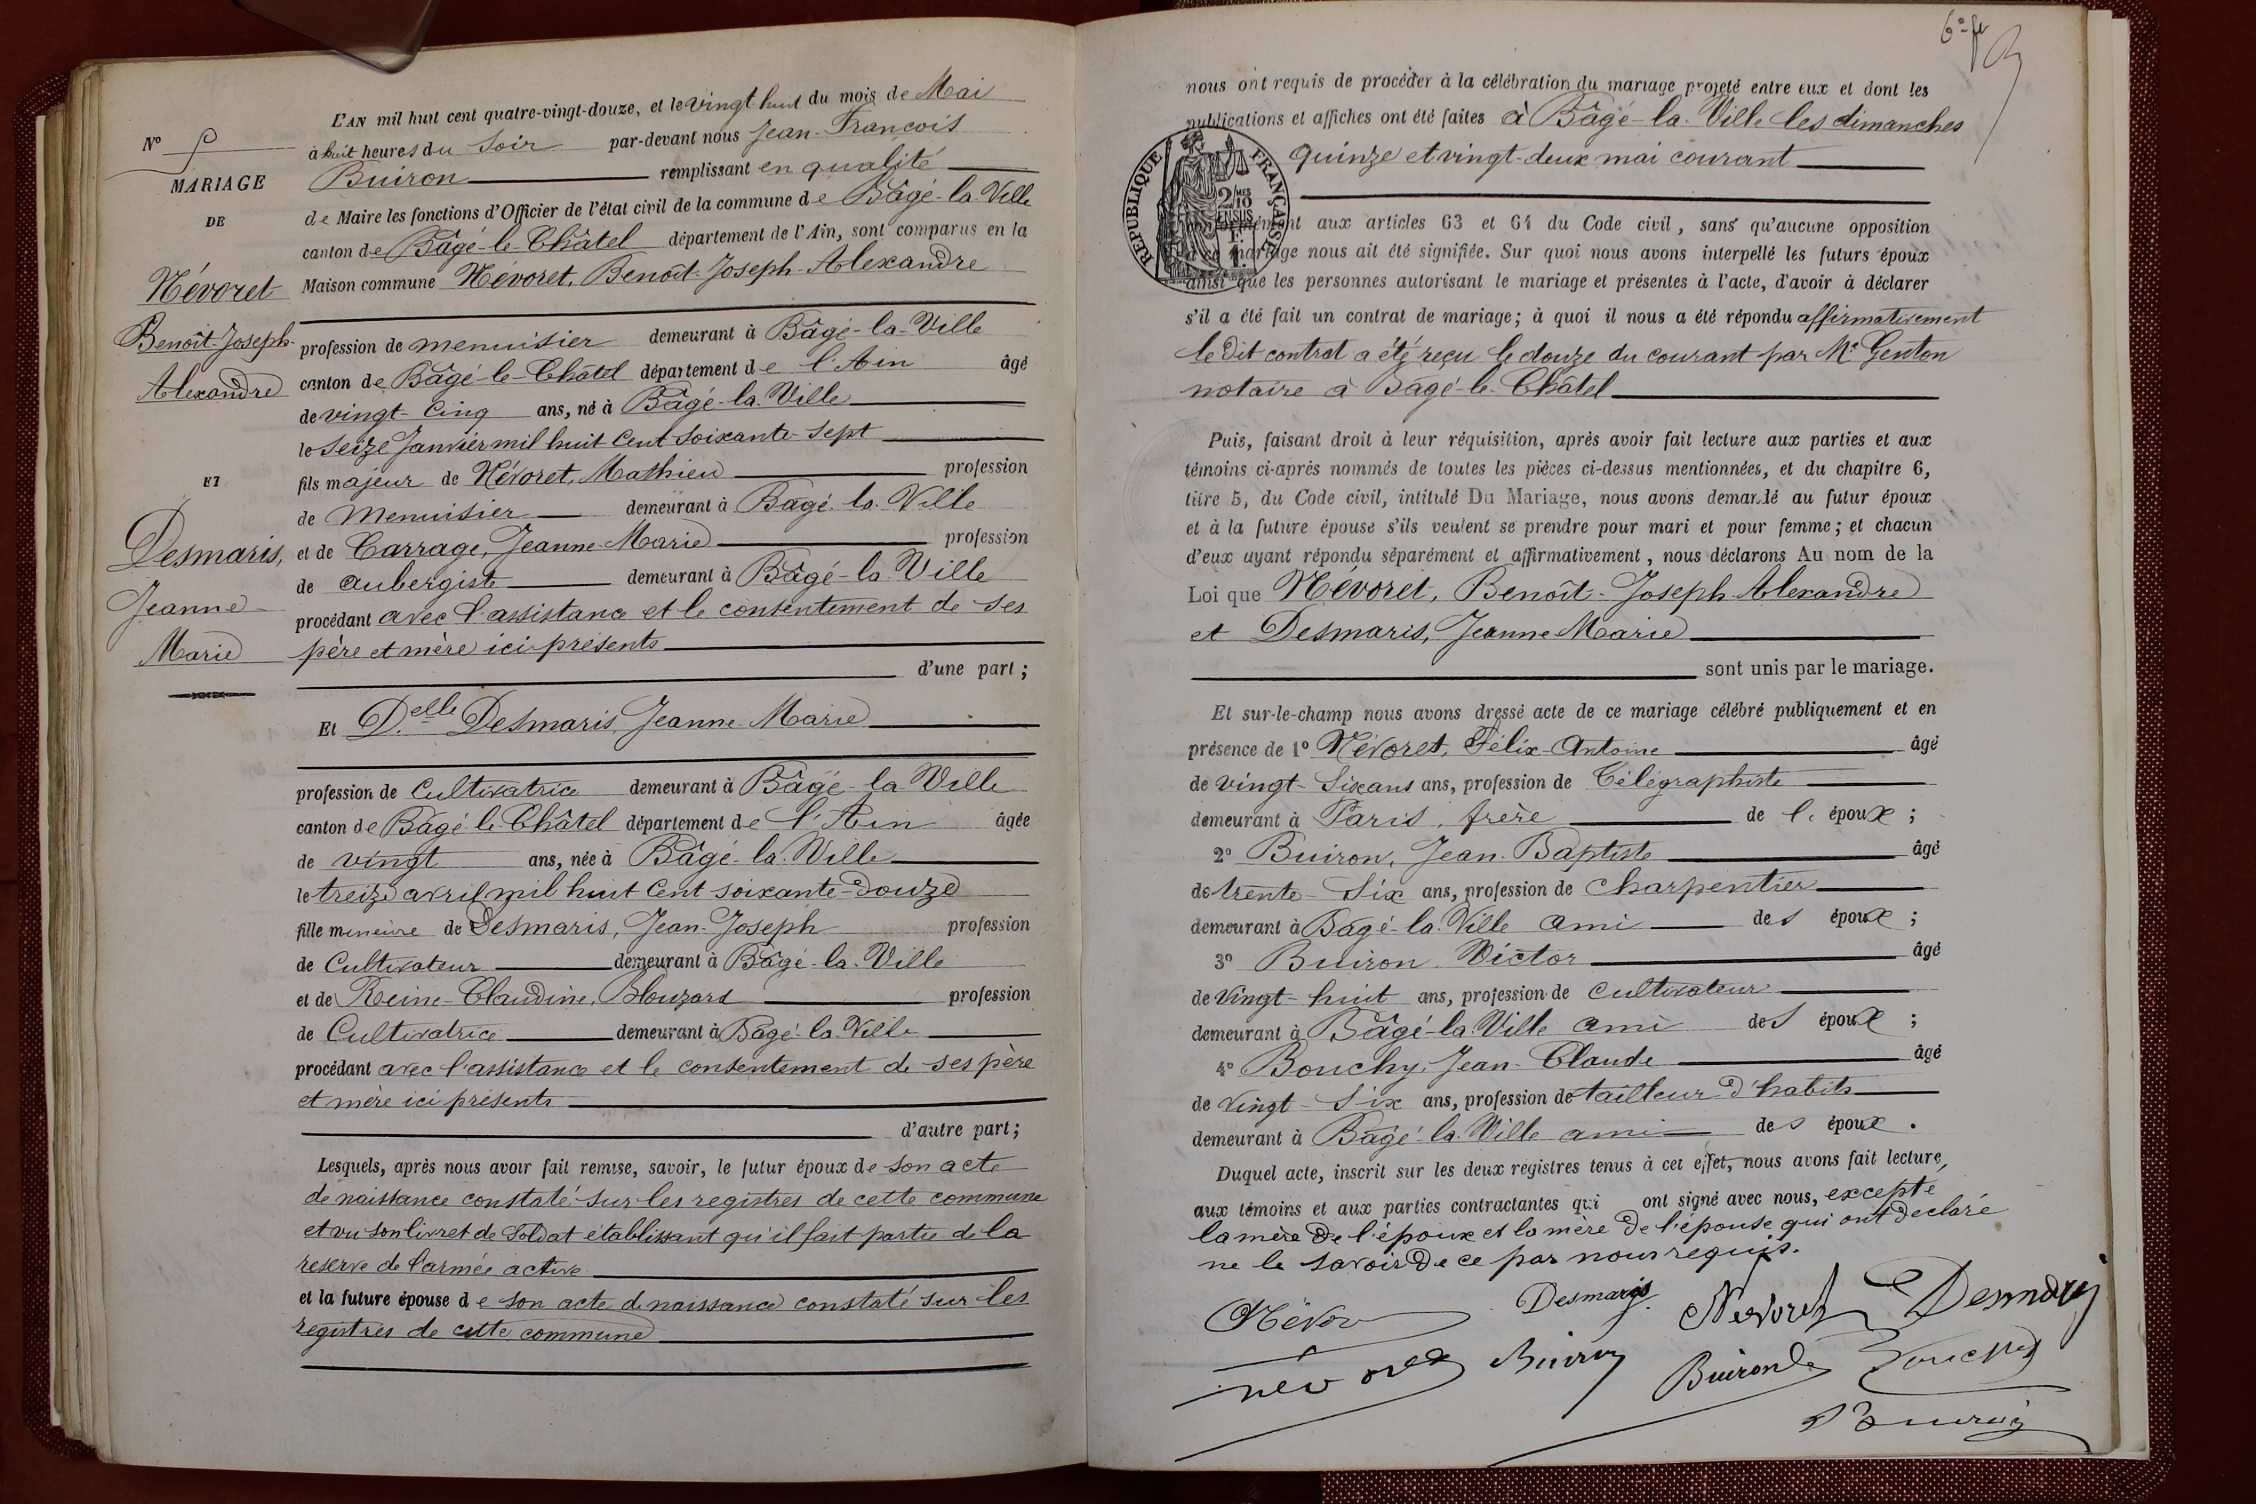 Nº 9
MARIAGE
DE
Névoret
Benoît-Joseph-
Alexandre
ET
Desmaris,
Jeanne
Marie
L'AN mil huit cent quatre-vingt-douze, et le vingt huit du mois de Mai
à huit heures du soir par-devant nous Jean-François
Buiron remplissant en qualité
de Maire les fonctions d'Officier de l'état civil de la commune de Bâgé-la-Ville
canton de Bâgé-le-Châtel département de l'Ain, sont comparus en la
Maison commune Névoret, Benoît-Joseph-Alexandre
profession de menuisier demeurant à Bâgé-la-Ville
canton de Bâgé-le-Châtel département de l'Ain âgé
de vingt-cinq ans, né à Bâgé-la-Ville
le seize Janvier mil huit cent soixante-sept
fils majeur de Névoret, Mathieu profession
de Menuisier demeurant à Bâgé-la-Ville
et de Carrage, Jeanne-Marie profession
de aubergiste demeurant à Bâgé-la-Ville
procédant avec l'assistance et le consentement de ses
père et mère ici présents
d'une part;
Et D.elle Desmaris Jeanne-Marie
profession de Cultivatrice demeurant à Bâgé-la-Ville
canton de Bâgé-le-Châtel département de l'Ain âgée
de vingt ans, née à Bâgé-la-Ville
le treize avril mil huit cent soixante-douze
fille mineure de Desmaris, Jean-Joseph profession
de Cultivateur demeurant à Bâgé-la-Ville
et de Reine-Claudine, Blouzard profession
de Cultivatrice demeurant à Bâgé-la-Ville
procédant avec l'assistance et le consentement de ses père
et mère ici présents
d'autre part;
Lesquels, après nous avoir fait remise, savoir, le futur époux de son acte
de naissance constaté sur les registres de cette commune
et vu son livret de Soldat établissant qu'il fait partie de la
réserve de l'armée active
et la future épouse de son acte de naissance constaté sur les
registres de cette commune
6e ft
nous ont requis de procéder à la célébration du mariage projeté entre eux et dont les
publications et affiches ont été faites à Bâgé-la-Ville les dimanches
quinze et vingt-deux mai courant
REPUBLIQUE FRANÇAISE
2/10 MES
EN SUS
1F.
conformément aux articles 63 et 64 du Code civil, sans qu'aucune opposition
à ce mariage nous ait été signifiée. Sur quoi nous avons interpellé les futurs époux
ainsi que les personnes autorisant le mariage et présentes à l'acte, d'avoir à déclarer
s'il a été fait un contrat de mariage; à quoi il nous a été répondu affirmativement
le dit contrat a été reçu le douze du courant par Me Genton
notaire à Bâgé-le-Châtel
Puis, faisant droit à leur réquisition, après avoir fait lecture aux parties et aux
témoins ci-après nommés de toutes les pièces ci-dessus mentionnées, et du chapitre 6,
titre 5, du Code civil, intitulé Du Mariage, nous avons demandé au futur époux
et à la future épouse s'ils veulent se prendre pour mari et pour femme; et chacun
d'eux ayant répondu séparément et affirmativement, nous déclarons Au nom de la
Loi que Névoret, Benoît-Joseph-Alexandre
et Desmaris, Jeanne Marie
sont unis par le mariage.
Et sur-le-champ nous avons dressé acte de ce mariage célébré publiquement et en
présence de 1º Névoret, Félix-Antoine âgé
de vingt-six ans ans, profession de Télégraphiste
demeurant à Paris, frère de l'époux;
2º Buiron, Jean-Baptiste âgé
de trente-six ans, profession de charpentier
demeurant à Bâgé-la-Ville ami des époux;
3º Buiron Victor âgé
de vingt-huit ans, profession de cultivateur
demeurant à Bâgé-la-Ville ami des époux;
4º Bouchy, Jean-Claude âgé
de vingt-six ans, profession de tailleur d'habits
demeurant à Bâgé-la-Ville ami des époux.
Duquel acte, inscrit sur les deux registres tenus à cet effet, nous avons fait lecture,
aux témoins et aux parties contractantes qui ont signé avec nous, excepté
la mère de l'époux et la mère de l'épouse qui ont déclaré
ne le savoir de ce par nous requis.
Névor Desmaris Nevoret Desmaris
nevoret Buiron Buiron Bouchy
Buiron